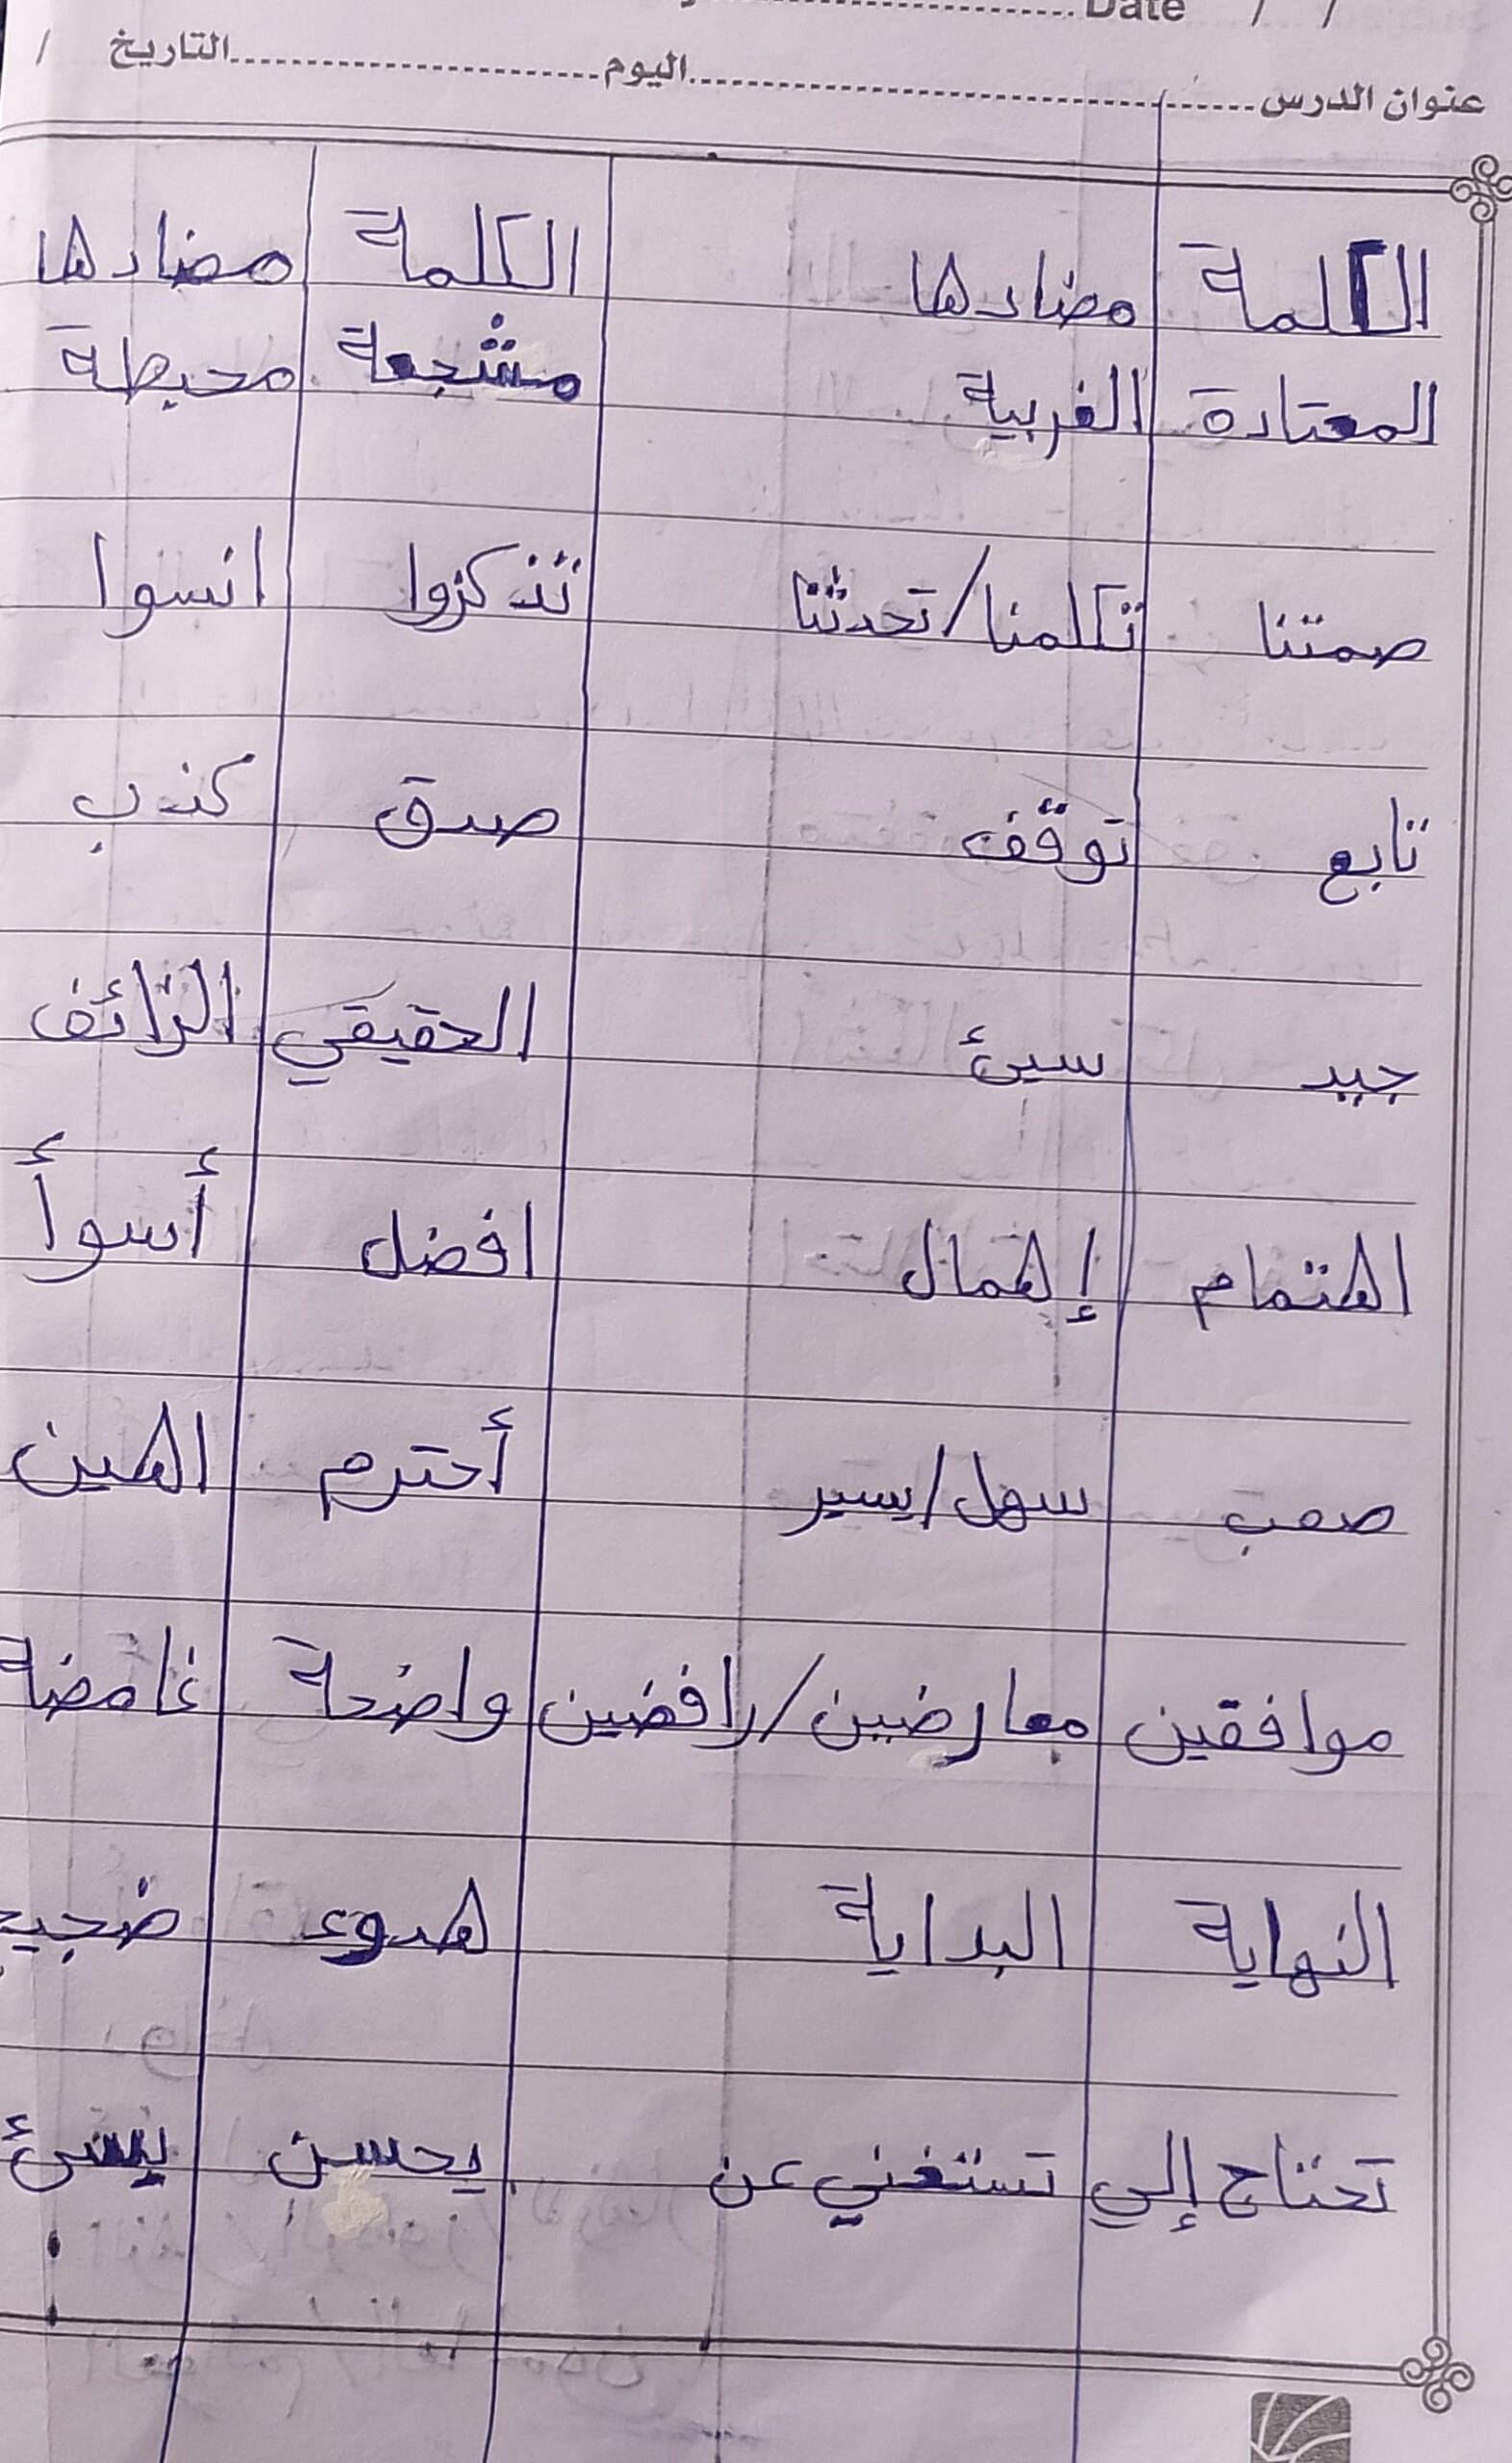 Date / /
عنوان الدرس اليوم التاريخ /
الكلمة مضادها الكلمة مضادها
المعتادة الغريبة مشجعة محبطة
صمتنا تكلمنا/تحدثنا تذكروا انسوا
تابع توقّف صدق كذب
جيد سيئ الحقيقي الزائف
اهتمام إهمال افضل أسوأ
صعب سهل/يسير أحترم اهين
موافقين معارضين/رافضين واضحة غامضة
النهاية البداية هدوء
تحتاج إلي تستغني عن يحسن يسئ